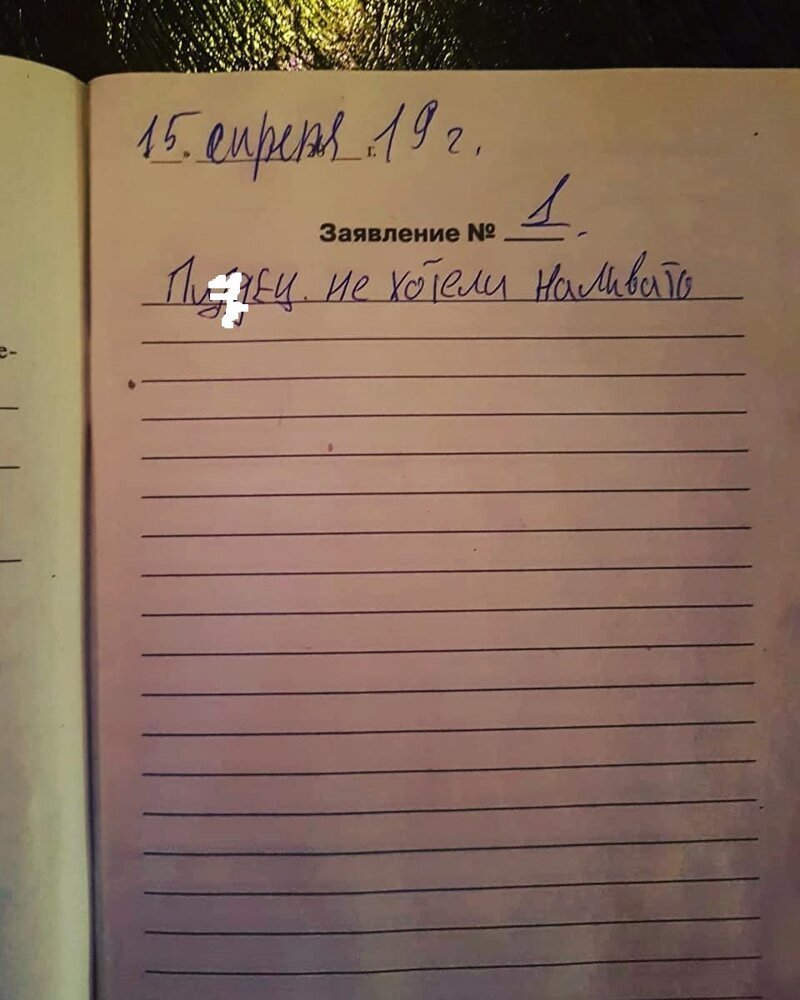 15 апреля 19 г.
Заявление № 1
не хотели наливать
е-